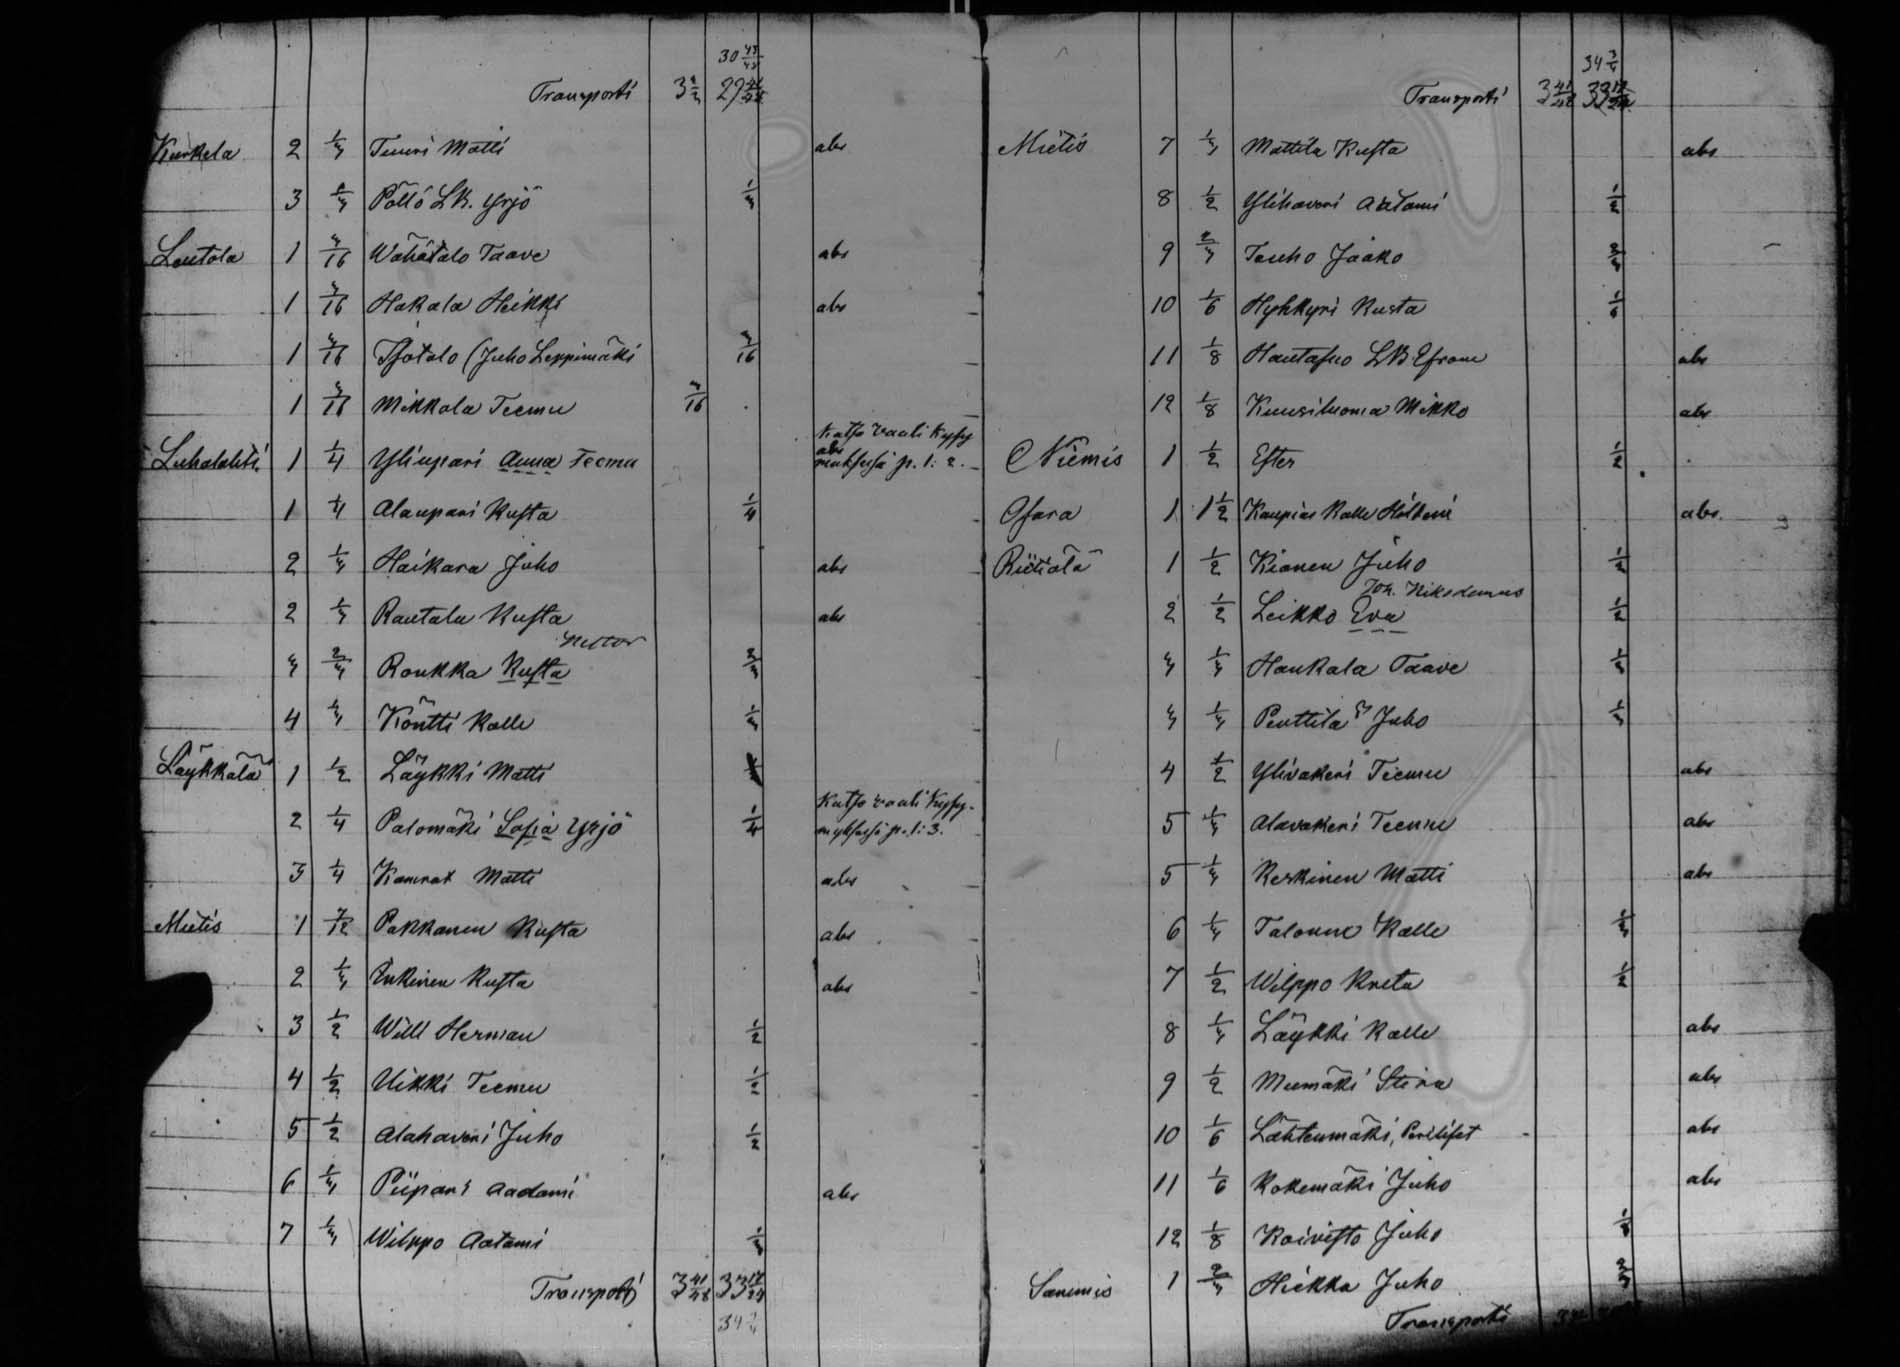 30 43/48
Transporti 3 2/2
Kurkela 2 1/4 Tuuri Matti abs
3 2/4 Pöllö LB. Yrjö 1/4
Leutola 1 3/16 Wähätalo Taave abs
1 3/16 Hakala Heikki abs
1 3/16 Isotalo (Juho Leppimäki 3/16
1 3/16 Mikkola Teemu 3/16
Luhalahti 1 1/4 Yliupari Anna Teemu Katso vaali Kysy abs muksessa p. 1: 2.
1 1/4 Alaupari Kusta 1/4
2 1/4 Haikara Juho abs
2 1/4 Rautalu Kusta abs
Nestor
4 2/4 Roukka Kusta 2/4
4 1/4 Köntti Kalle 1/4
Läykkälä 1 1/2 Läykki Matti
2 1/4 Palomäki Sofia Yrjö 1/4 Katso vaali Kysy-myksessä p. 1: 3.
3 1/4 Kamrat Matti abs
Mietis 1 7/12 Pakkanen Kusta abs
2 1/4 Inkinen Kusta abs
3 1/2 Will Herman 1/2
4 1/2 Uikki Teemu 1/2
5 1/2 Alahaveri Juho 1/2
6 1/4 Piipari Aadami abs
7 1/4 Wilppo Aatami 1/4
Transporti 3 41/48 33 17/24
34 3/4
34 3/4
Transporti 3 41/48 33 17/24
Mietis 7 1/4 Mattila Kusta abs
8 1/2 Ylihaveri Aatami 1/2
9 2/4 Tenho Jaako 2/4
10 1/6 Hyhkyri Kusta 1/6
11 1/8 Hautasuo LB Efraim abs
12 1/8 Kuusiluoma Mikko abs
Niemis 1 1/2 Ester 1/2
Osara 1 1 1/2 Kaupias Kalle abs
Riitiala 1 1/2 Kionen Juho 1/2
Joh. Nikodemus
2 1/2 Leikko Eva 1/2
4 1/4 Haukala Taave 1/4
4 1/4 Penttilä Juho 1/4
4 1/2 Ylivakeri Teemu abs
5 1/4 Alavakeri Teemu abs
5 1/4 Keskinen Matti abs
6 1/4 Talonen Kalle 1/4
7 1/2 Wilppo Kreta 1/2
8 1/4 Läykki Kalle abs
9 1/2 Mumäki Stina abs
10 1/6 Lähteenmäki, Perilliset abs
11 1/6 Kokemäki Juho abs
12 1/8 Koivisto Juho 1/8
Sammis 1 2/4 Hiekka Juho 2/4
Transporti